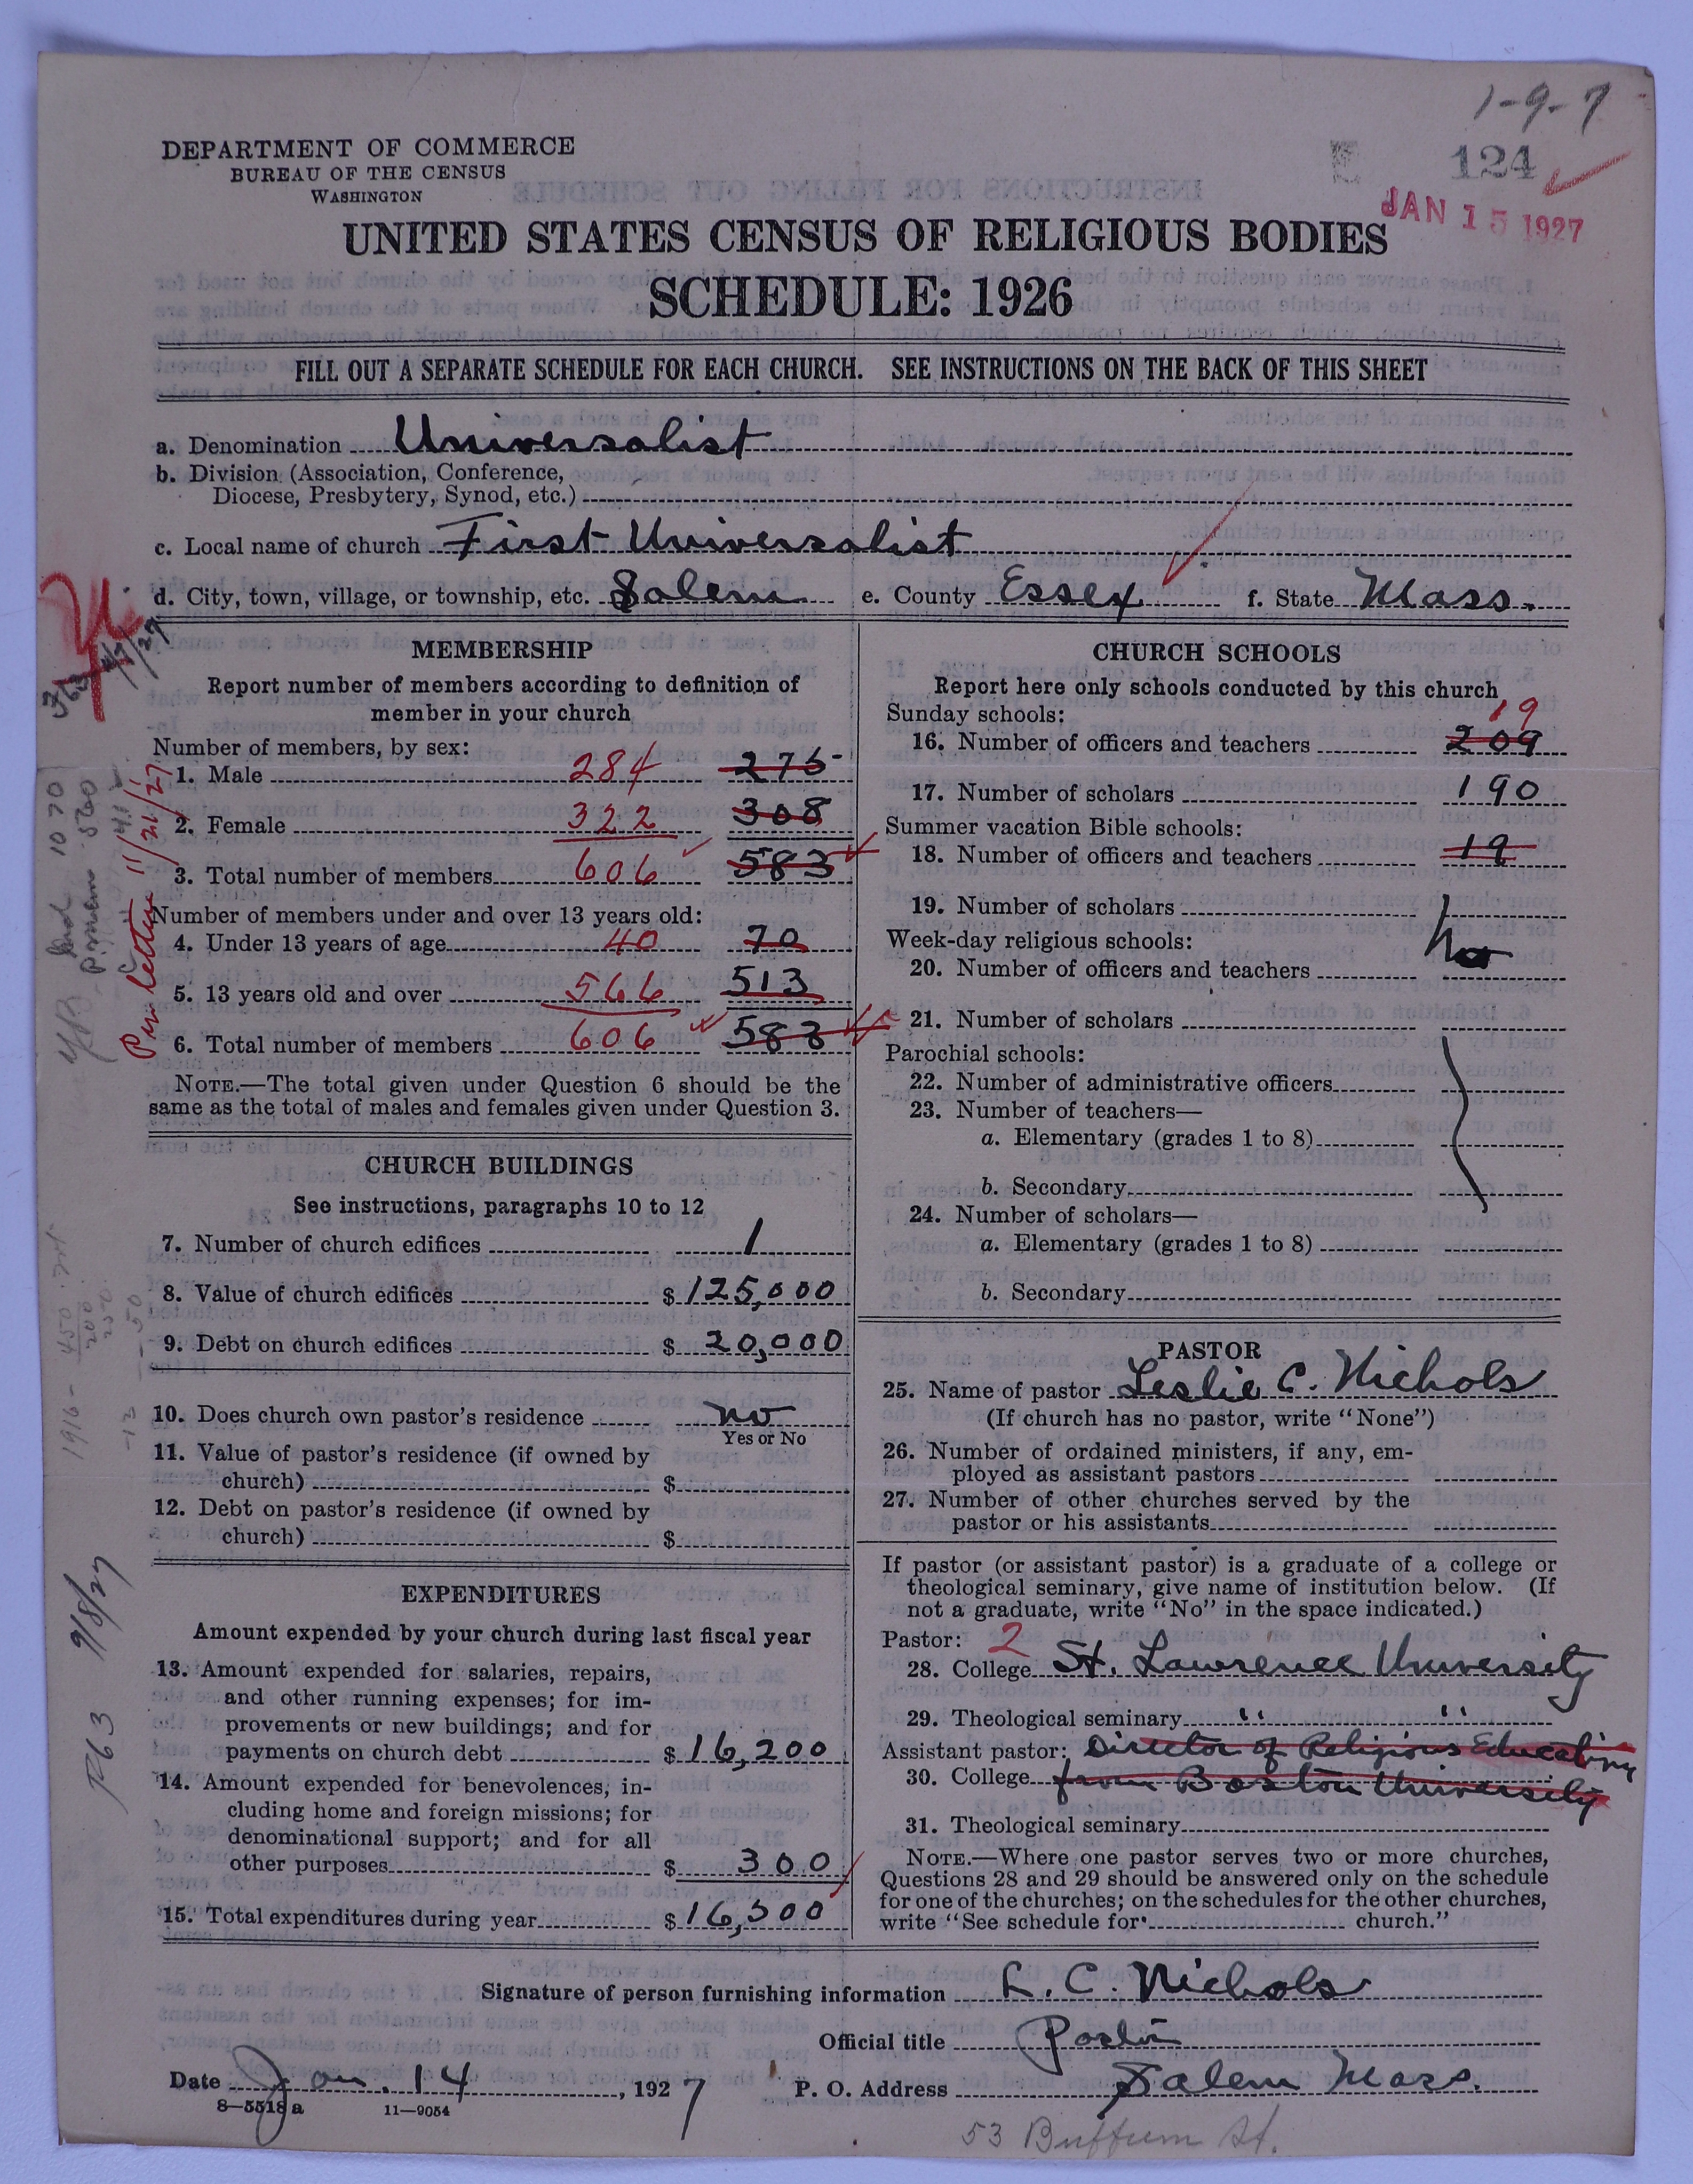 1-9-7
124
JAN 15 1927
DEPARTMENT OF COMMERCE
BUREAU OF THE CENSUS
WASHINGTON
UNITED STATES CENSUS OF RELIGIOUS BODIES
SCHEDULE: 1926
FILL OUT A SEPARATE SCHEDULE FOR EACH CHURCH. SEE INSTRUCTIONS ON THE BACK OF THIS SHEET
a. Denomination Universalist
b. Division (Association, Conference,
Diocese, Presbytery, Synod, etc.)
c. Local name of church First Universalist
d. City, town, village, or township, etc. Salem e. County Essex f. State Mass.
MEMBERSHIP
Report number of members according to definition of
member in your church
Number of members, by sex:
1. Male 284 275
2. Female 322 308
3. Total number of members 606 583
Number of members under and over 13 years old:
4. Under 13 years of age 40 70
5. 13 years old and over 566 513
6. Total number of members 606 583
NOTE.—The total given under Question 6 should be the
same as the total of males and females given under Question 3.
Per letter 11/21/27
CHURCH BUILDINGS
See instructions, paragraphs 10 to 12
7. Number of church edifices 1
8. Value of church edifices $125,000
9. Debt on church edifices $20,000
10. Does church own pastor's residence no
Yes or No
11. Value of pastor's residence (if owned by
church) $
12. Debt on pastor's residence (if owned by
church) $
EXPENDITURES
Amount expended by your church during last fiscal year
13. Amount expended for salaries, repairs,
and other running expenses; for im-
provements or new buildings; and for
payments on church debt $16,200
14. Amount expended for benevolences, in-
cluding home and foreign missions; for
denominational support; and for all
other purposes $300
15. Total expenditures during year $16,500
R63 9/8/27
CHURCH SCHOOLS
Report here only schools conducted by this church
Sunday schools: 19
16. Number of officers and teachers 209
17. Number of scholars 190
Summer vacation Bible schools:
18. Number of officers and teachers 19
19. Number of scholars
Week-day religious schools: no
20. Number of officers and teachers
21. Number of scholars
Parochial schools:
22. Number of administrative officers
23. Number of teachers—
a. Elementary (grades 1 to 8)
b. Secondary
24. Number of scholars—
a. Elementary (grades 1 to 8)
b. Secondary
PASTOR
25. Name of pastor Leslie C. Nichols
(If church has no pastor, write "None")
26. Number of ordained ministers, if any, em-
ployed as assistant pastors
27. Number of other churches served by the
pastor or his assistants
If pastor (or assistant pastor) is a graduate of a college or
theological seminary, give name of institution below. (If
not a graduate, write "No" in the space indicated.)
Pastor: 2
28. College St. Lawrence University
29. Theological seminary " "
Assistant pastor: Director of Religious Education
30. College from Boston University
31. Theological seminary
NOTE.—Where one pastor serves two or more churches,
Questions 28 and 29 should be answered only on the schedule
for one of the churches; on the schedules for the other churches,
write "See schedule for church."
Signature of person furnishing information L. C. Nichols
Official title Pastor
Date Jan. 14, 1927 P. O. Address Salem Mass.
8-5518 a 11-9054
53 Buffum St.